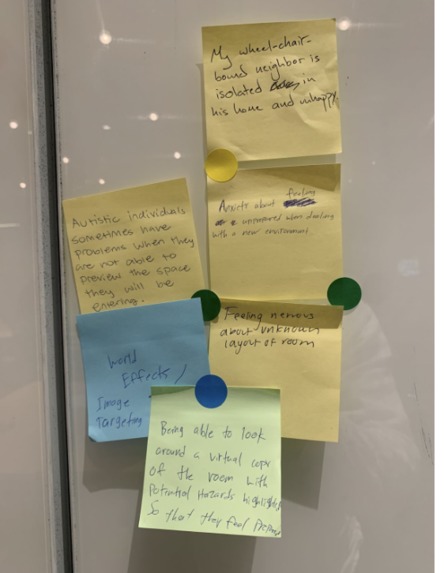 My wheel-chair-
bound neighbor is
isolated in
his home and unhappy
Autistic individuals
sometimes have
problems when they
are not able to
preview the space
they will be
entering.
Anxiety about feeling
unprepared when dealing
with a new environment.
Feeling nervous
about unknown
layout of room
World
Effects/
Image
Targeting
Being able to look
around a virtual copy
of the room with
Potential Hazards highlighted
So that they feel prepared